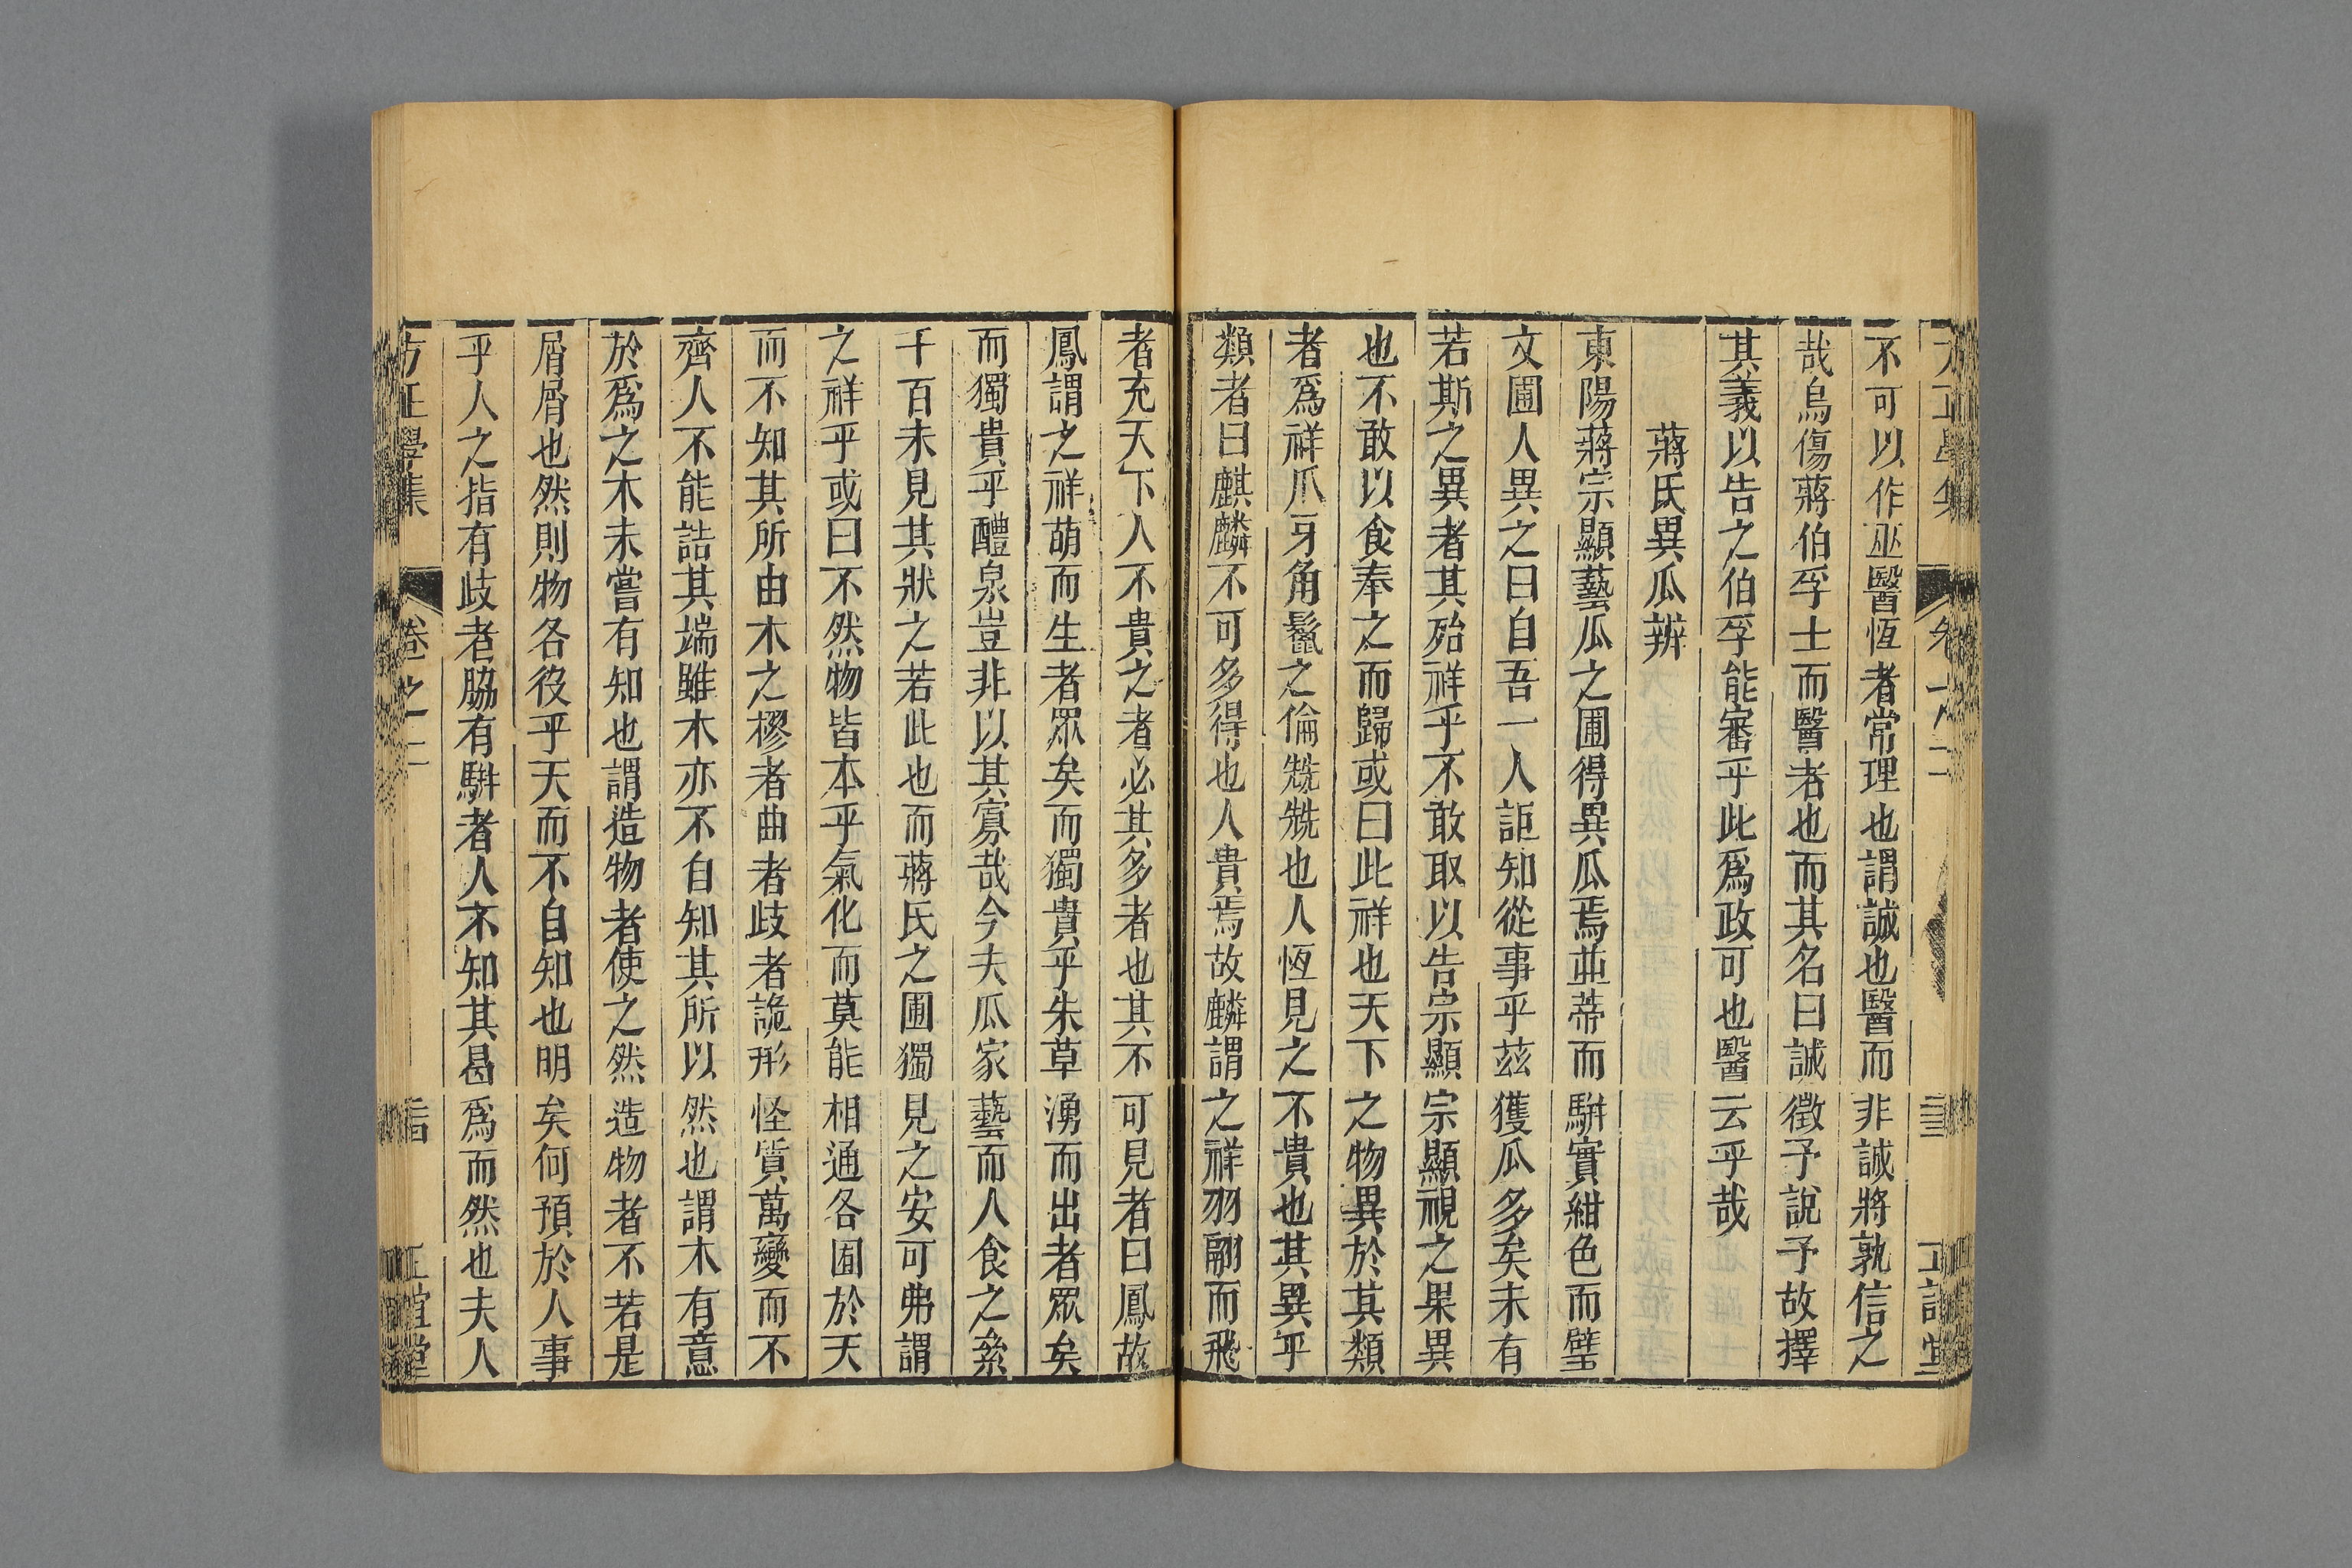 不可以作巫醫恆者常理也謂誠也醫而非誠將孰信之
哉烏傷蔣伯孚士而醫者也而其名曰誠徵予說予故擇
其義以告之伯孚能審乎此爲政可也醫云乎哉
蔣氏異瓜辨
東陽蔣宗顯藝瓜之圃得異瓜焉並蒂而駢實紺色而璧
文圃人異之曰自吾一人詎知從事乎茲獲瓜多矣未有
若斯之異者其殆祥乎不敢取以告宗顯宗顯視之果異
也不敢以食奉之而歸或曰此祥也天下之物異於其類
者爲祥爪牙角鬣之倫兟兟也人恆見之不貴也其異乎
類者曰麒麟不可多得也人貴焉故麟謂之祥羽翮而飛
者充天下人不貴之者必其多者也其不可見者曰鳳故
鳳謂之祥萌而生者眾矣而獨貴乎朱草湧而出者眾矣
而獨貴乎醴泉豈非以其寡哉今夫瓜家藝而人食之絫
千百未見其狀之若此也而蔣氏之圃獨見之安可弗謂
之祥乎或曰不然物皆本乎氣化而莫能相通各囿於天
而不知其所由木之樛者曲者歧者詭形怪質萬變而不
齊人不能詰其端雖木亦不自知其所以然也謂木有意
於爲之木未嘗有知也謂造物者使之然造物者不若是
屑屑也然則物各役乎天而不自知也明矣何預於人事
乎人之指有歧者脇有駢者人不知其曷爲而然也夫人
方正學集
卷之二